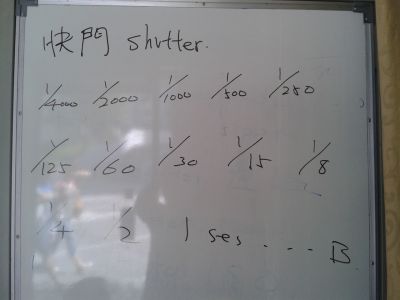 快門 shutter.
1/4000 1/2000 1/1000 1/500 1/250
1/125 1/60 1/30 1/15 1/8
1/4 1/2 1 ses .... B